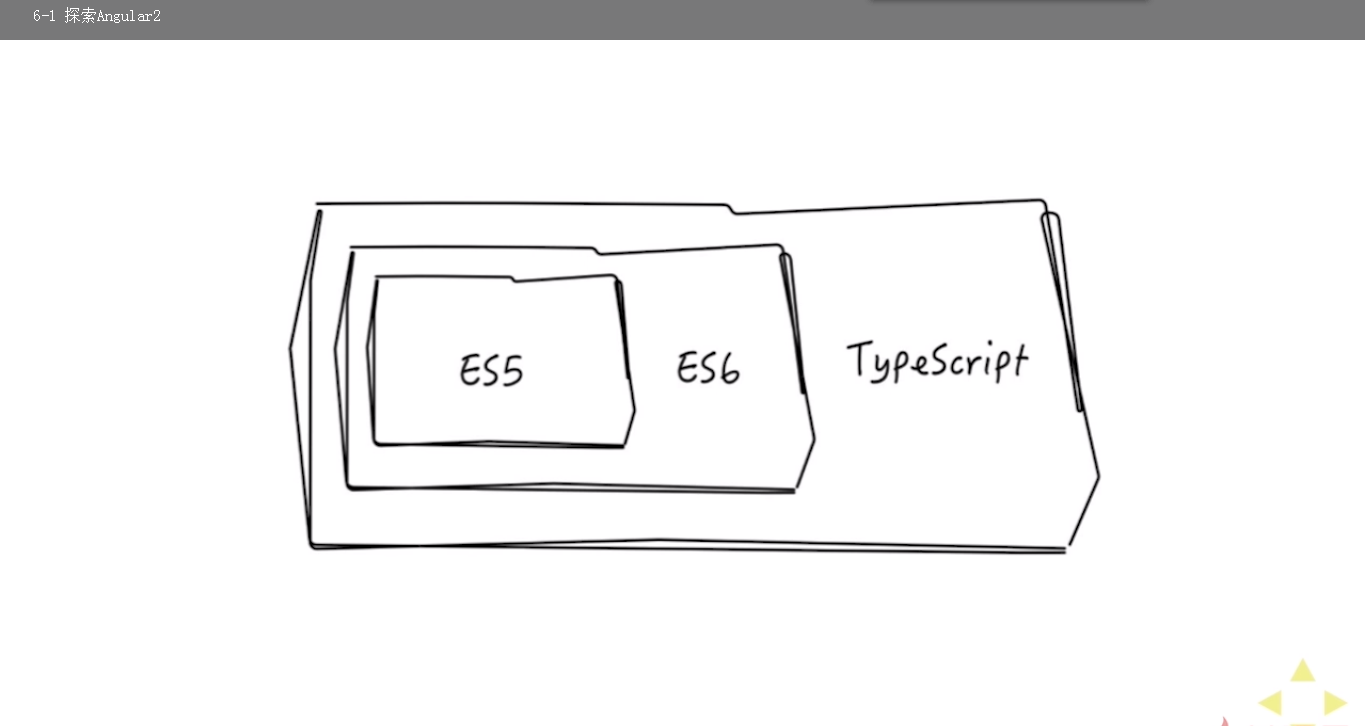 6-1 探索Angular2
ES5 ES6 TypeScript